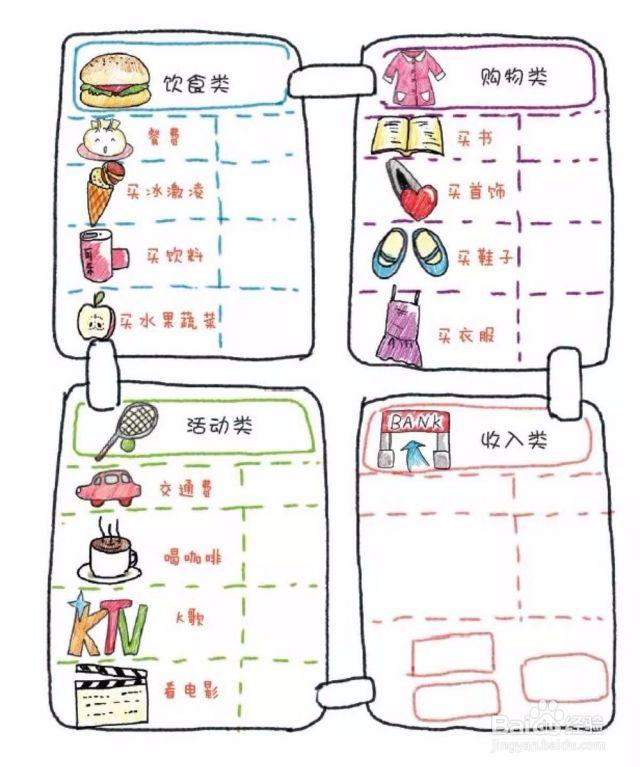 饮食类
餐费
买冰激凌
可乐
买饮料
买水果蔬菜
购物类
买书
买首饰
买鞋子
买衣服
活动类
交通费
喝咖啡
KTV
K歌
看电影
BANK
收入类
Baidu经验
jingyan.baidu.com